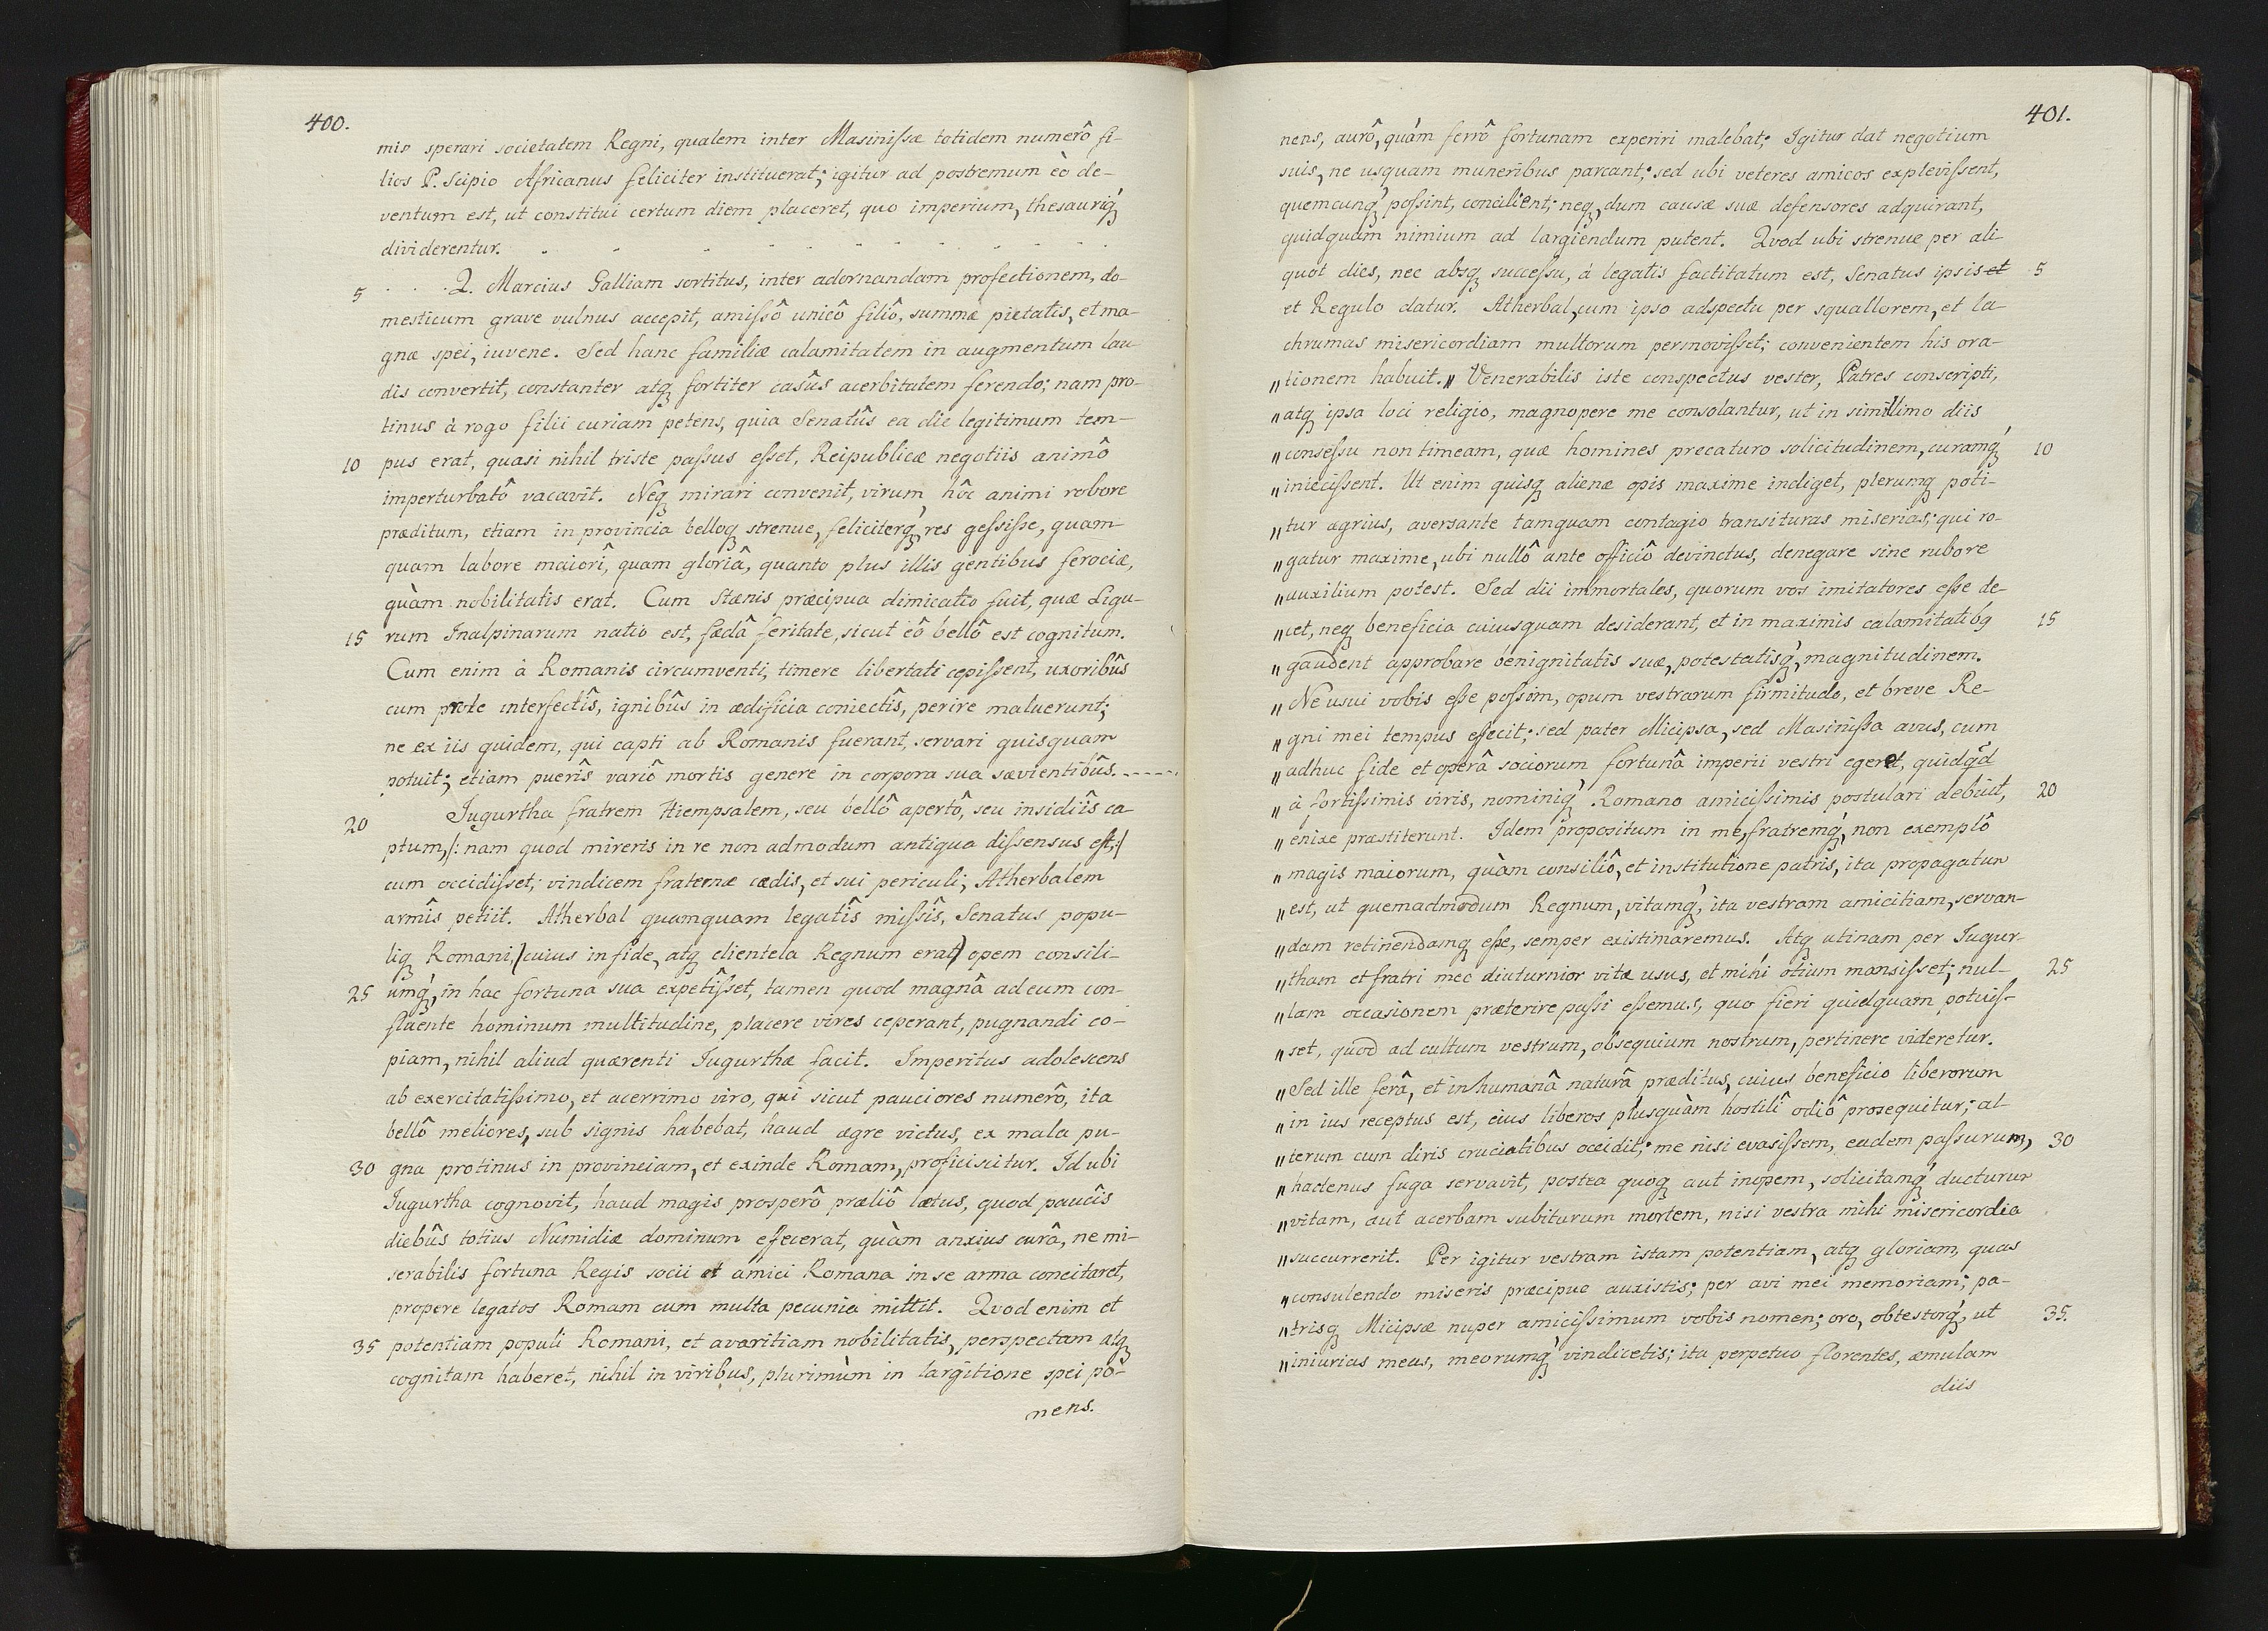 400.
mis sperari societatem Regni, qualem inter Masinissæ totidem numerô fi-
lios P. Scipio Africanus feliciter instituerat; igitur ad postremum eò de-
ventum est, ut constitui certum diem placeret, quo imperium, thesauriq́
dividerentur. . . . . . . . . . . .
5 . . . Q. Marcius Galliam sortitus, inter adornandam profectionem, do-
mesticum grave vulnus accepit, amissô unicô filiô, summæ pietatis, et ma-
gnæ spei, iuvene. Sed hanc familiæ calamitatem in augmentum lau-
dis convertit, constanter atq fortiter casûs acerbitatem ferendo; nam pro-
tinus à rogo filii curiam petens, quia Senatûs ea die legitimum tem-
10 pus erat, quasi nihil triste passus esset, Reipublicæ negotiis animô
imperturbatô vacavit. Neq mirari convenit, virum hôc animi robore
præditum, etiam in provincia belloq strenue, feliciterq́, res gessisse, quam-
quam labore maiorî, quam gloriâ, quanto plus illis gentibus ferociæ,
quàm nobilitatis erat. Cum Stænis præcipua dimicatio fuit, quæ Ligu-
15 rum Inalpinarum natio est, fædâ feritate, sicut eô bellô est cognitum.
Cum enim à Romanis circumventi, timere libertati cepissent, uxoribûs
cum prole interfectîs, ignibûs in ædificia coniectîs, perire maluerunt;
ne ex iis quidem, qui capti ab Romanis fuerant, servari quisquam
potuit; etiam puerîs variô mortis genere in corpora sua sævientibûs. - - - - -
20 Jugurtha fratrem Hiempsalem, seu bellô apertô, seu insidiîs ca-
ptum, /: nam quod mireris in re non admodum antiqua dissensus est, :/
cum occidisset; vindicem fraternæ cædis, et sui periculi, Atherbalem
armîs petiit. Atherbal quamquam legatîs missîs, Senatus popu-
liq Romani, (cuius in fide, atq clientela Regnum erat) opem consili-
25 umq́, in hac fortuna sua expetîsset, tamen quod magnâ ad eum con-
fluente hominum multitudine, placere vires ceperant, pugnandi co-
piam, nihil aliud quærenti Jugurthæ facit. Imperitus adolescens
ab exercitatissimo, et acerrimo viro, qui sicut pauciores numerô, ita
bellô meliores, sub signis habebat, haud ægre victus, ex mala pu-
30 gna protinus in provinciam, et exinde Romam, proficiscitur. Id ubi
Jugurtha cognovit, haud magis prosperô præliô lætus, quod paucîs
diebûs totius Numidiæ dominum efecerat, quàm anxius curâ, ne mi-
serabilis fortuna Regis socii et amici Romana in se arma concitaret,
propere legatos Romam cum multa pecunia mittit. Qvod enim et
35 potentiam populi Romani, et avaritiam nobilitatis, perspectam atq
cognitam haberet, nihil in viribus, plurimùm in largitione spei po-
nens.
401.
nens, aurô, quàm ferrô fortunam experiri malebat; Igitur dat negotium
suis, ne usquam muneribus parcant; sed ubi veteres amicos explevissent,
quemcunq́ possint, concilient; neq, dum causæ suæ defensores adquirant,
quidquam nimium ad largiendum putent. Qvod ubi strenue per ali-
quot dies, nec absq successu, à legatis factitatum est, Senatus ipsis et 5
et Regulo datur. Atherbal, cum ipso adspectu per squallorem, et la-
chrumas misericordiam multorum permovisset; convenientem his ora-
„tionem habuit.„ Venerabilis iste conspectus vester, Patres conscripti,
„atq ipsa loci religio, magnopere me consolantur, ut in simillimo diis
„consessu non timeam, quæ homines precaturo solicitudinem, curamq́ 10
„iniecissent. Ut enim quisq alienæ opis maxime indiget, plerumq poti-
„tur ægrius, aversante tamquam contagio transituras miserias; qui ro-
„gatur maxime, ubi nullô ante officiô devinctus, denegare sine rubore
„auxilium potest. Sed dii immortales, quorum vos imitatores esse de-
„cet, neq beneficia cuiusquam desiderant, et in maximis calamitatibq 15
„gaudent approbare benignitatis suæ, potestatisq́, magnitudinem.
„Ne usui vobis esse possim, opum vestrarum firmitudo, et breve Re-
„gni mei tempus effecit; sed pater Micipsa, sed Masinissa avus, cum
„adhuc fide et operâ sociorum fortunâ imperii vestri egeret, quidq̄d
„à fortissimis viris, nominiq́ Romano amicissimis postulari debuit, 20
„enixe præstiterunt. Idem propositum in me, fratremq́, non exemplô
„magis maiorum, quàm consiliô, et institutione patris, ita propagatum
„est, ut quemadmodum Regnum, vitamq́, ita vestram amicitiam, servan-
„dam retinendamq esse, semper existimaremus. Atq utinam per Jugur-
„tham et fratri meo diuturnior vitæ usus, et mihi otium mansisset; nul- 25
„lam occasionem præterire passi essemus, quo fieri quidquam potuis-
„set, quod ad cultum vestrum, obsequium nostrum, pertinere videretur.
„Sed ille ferâ, et inhumanâ naturâ præditus, cuius beneficio liberorum
„in ius receptus est, eius liberos plusquàm hostilî odiô prosequitur; al-
„terum cum diris cruciatibus occidit; me nisi evasissem, eadem passurum, 30
„hactenus fuga servavit, postea quoq aut inopem, solicitamq́ ducturum
„vitam, aut acerbam subiturum mortem, nisi vestra mihi misericordia
„succurrerit. Per igitur vestram istam potentiam, atq gloriam, quas
„consulendo miseris præcipue auxistis; per avi mei memoriam; pa-
„trisq Micipsæ nuper amicissimum vobis nomen; oro, obtestorq́, ut 35.
„iniurias meas, meorumq́ vindicetis; ita perpetuo florentes, æmulam
diis